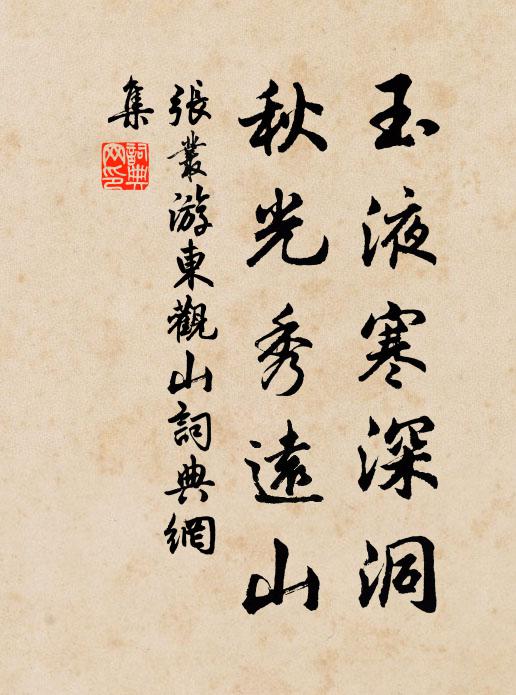 玉液寒深洞
秋光秀遠山
張叢游東觀山詞典網
集
詞典網印